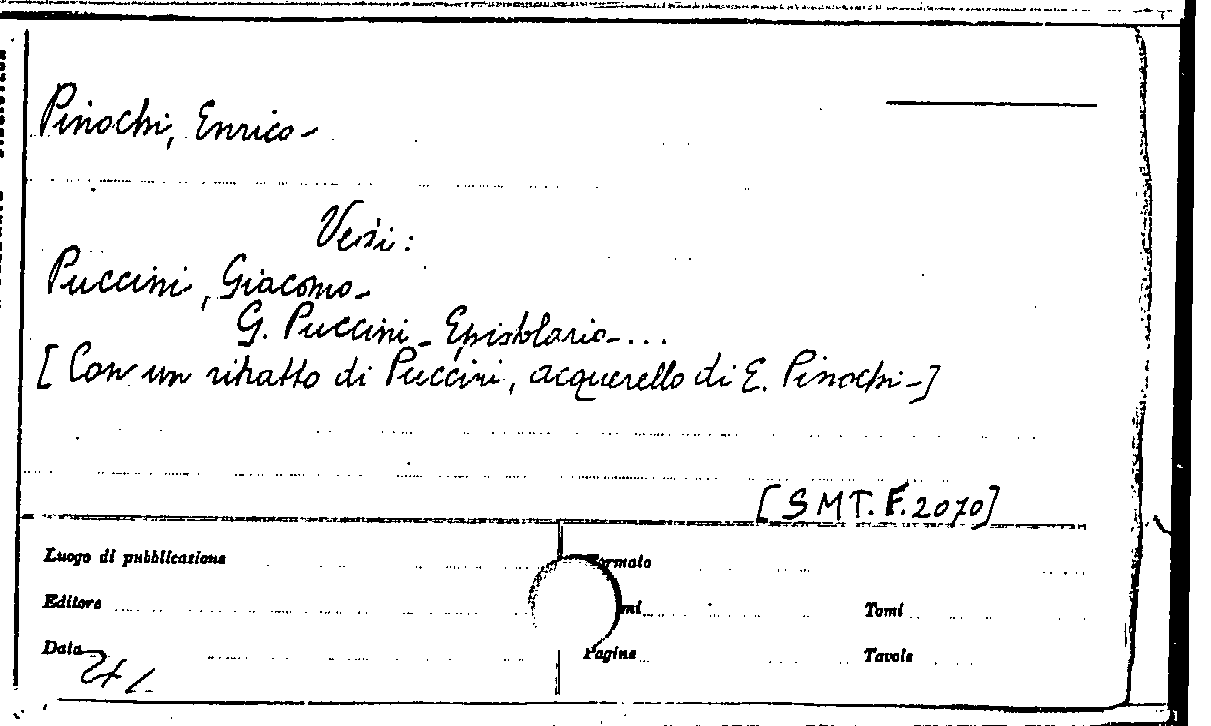 Pinochi, Enrico-
Vedi:
Puccini, Giacomo-
G. Puccini - Epistolario-...
[Con un ritratto di Puccini, acquerello di E. Pinochi-]
[SMT. F. 2070]
Luogo di pubblicazione
Formato
Editore
Tomi
Data
Pagine
Tavole